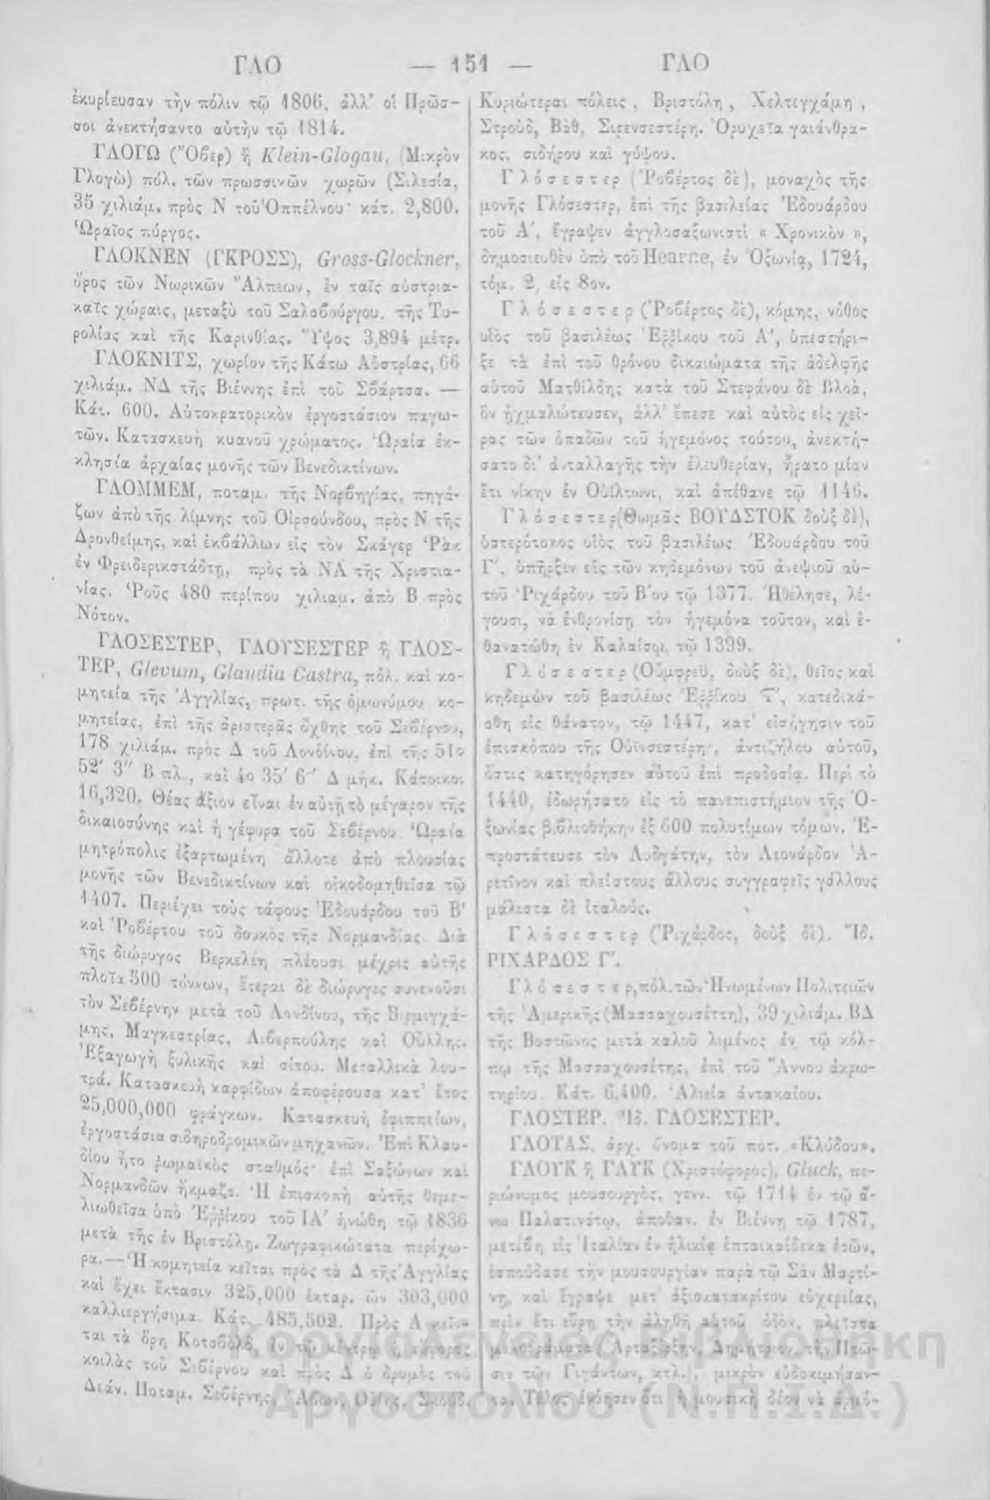 ΓΛΟ — 151 — ΓΛΟ
ἐκυρίευσαν τὴν πόλιν τῷ 1806, ἀλλ' οἱ Πρῶσ-
σοι ἀνεκτήσαντο αὐτὴν τῷ 1814.
ΓΛΟΓΩ (Ὄβερ) ἢ Klein-Glogau, (Μικρὸν
Γλογὼ) πόλ. τῶν πρωσσινῶν χωρῶν (Σιλεσία,
35 χιλιάμ. πρὸς Ν τοῦ Ὀππέλνου· κάτ. 2,800.
Ὡραῖος πύργος.
ΓΛΟΚΝΕΝ (ΓΚΡΟΣΣ), Gross-Glockner,
ὄρος τῶν Νωρικῶν Ἄλπεων, ἐν ταῖς αὐστρια-
καῖς χώραις, μεταξὺ τοῦ Σαλσβούργου, τῆς Τυ-
ρολίας καὶ τῆς Καρινθίας. Ὕψος 3,894 μέτρ.
ΓΛΟΚΝΙΤΣ, χωρίον τῆς Κάτω Αὐστρίας, 66
χιλιάμ. ΝΔ τῆς Βιέννης ἐπὶ τοῦ Σβάρτσα. —
Κάτ. 600. Αὐτοκρατορικὸν ἐργοστάσιον παγω-
τῶν. Κατασκευὴ κυανοῦ χρώματος. Ὡραία ἐκ-
κλησία ἀρχαίας μονῆς τῶν Βενεδικτίνων.
ΓΛΟΜΜΕΜ, ποταμ. τῆς Νορβηγίας, πηγά-
ζων ἀπὸ τῆς λίμνης τοῦ Οἰρσούνδου, πρὸς Ν τῆς
Δρονθείμης, καὶ ἐκβάλλων εἰς τὸν Σκάγερ Ῥὰκ
ἐν Φρειδερικστάδτῃ, πρὸς τὰ ΝΑ τῆς Χριστια-
νίας. Ῥοῦς 480 περίπου χιλιαμ. ἀπὸ Β πρὸς
Νότον.
ΓΛΟΣΕΣΤΕΡ, ΓΛΟΥΣΕΣΤΕΡ ἢ ΓΛΟΣ-
ΤΕΡ, Glevum, Glaudia Castra, πόλ. καὶ κο-
μητεία τῆς Ἀγγλίας, πρωτ. τῆς ὁμωνύμου κο-
μητείας, ἐπὶ τῆς ἀριστερᾶς ὄχθης τοῦ Σεβέρνου,
178 χιλιάμ. πρὸς Δ τοῦ Λονδίνου, ἐπὶ τῆς 51ο
52' 3'' Β πλ., καὶ 4ο 35' 6'' Δ μήκ. Κάτοικοι
16,320. Θέας ἄξιον εἶναι ἐν αὐτῇ τὸ μέγαρον τῆς
δικαιοσύνης καὶ ἡ γέφυρα τοῦ Σεβέρνου. Ὡραία
μητρόπολις ἐξαρτωμένη ἄλλοτε ἀπὸ πλουσίας
μονῆς τῶν Βενεδικτίνων καὶ οἰκοδομηθεῖσα τῷ
1407. Περιέχει τοὺς τάφους Ἐδουάρδου τοῦ Β'
καὶ Ῥοβέρτου τοῦ δουκὸς τῆς Νορμανδίας. Διὰ
τῆς διώρυγος Βερκελέη πλέουσι μέχρις αὐτῆς
πλοῖα 500 τόννων, ἕτεραι δὲ διώρυγες συνενοῦσι
τὸν Σεβέρνην μετὰ τοῦ Λονδίνου, τῆς Βιρμιγχά-
μης, Μαγκεστρίας, Λιβερπούλης καὶ Οὔλλης.
Ἐξαγωγὴ ξυλικῆς καὶ σίτου. Μεταλλικὰ λου-
τρά. Κατασκευὴ καρφίδων ἀποφέρουσα κατ' ἔτος
25,000,000 φράγκων. Κατασκευὴ ἐφιππείων,
ἐργοστάσια σιδηροδρομικῶν μηχανῶν. Ἐπὶ Κλαυ-
δίου ἦτο ῥωμαϊκὸς σταθμός· ἐπὶ Σαξώνων καὶ
Νορμανδῶν ἤκμαζε. Ἡ ἐπισκοπὴ αὐτῆς θεμε-
λιωθεῖσα ὑπὸ Ἐρρίκου τοῦ ΙΑ' ἡνώθη τῷ 1836
μετὰ τῆς ἐν Βριστόλῃ. Ζωγραφικώτατα περίχω-
ρα. — Ἡ κομητεία κεῖται πρὸς τὰ Δ τῆς Ἀγγλίας
καὶ ἔχει ἔκτασιν 325,000 ἑκταρ. ὧν 303,000
καλλιεργήσιμα. Κάτ. 485,502. Πρὸς Α κεῖν-
ται τὰ ὄρη Κοτσβόλδ, ἐν τῷ κέντρῳ ἡ εὔφορος
κοιλὰς τοῦ Σεβέρνου καὶ πρὸς Δ ὁ δρυμὸς τοῦ
Δεάν. Ποταμ. Σεβέρνης, Ἄβων,
Κυριώτεραι πόλεις, Βριστόλη, Χελτεγχάμη,
Στρούδ, Βάθ, Σιρενσεστέρη. Ὀρυχεῖα γαιάνθρα-
κος, σιδήρου καὶ γύψου.
Γλόσεστερ (Ῥοβέρτος δὲ), μοναχὸς τῆς
μονῆς Γλόσεστερ, ἐπὶ τῆς βασιλείας Ἐδουάρδου
τοῦ Α', ἔγραψεν ἀγγλοσαξωνιστὶ « Χρονικὸν »,
δημοσιευθὲν ὑπὸ τοῦ Hearne, ἐν Ὀξωνίᾳ, 1724,
τόμ. 2, εἰς 8ον.
Γλόσεστερ (Ῥοβέρτος δὲ), κόμης, νόθος
υἱὸς τοῦ βασιλέως Ἐρρίκου τοῦ Α', ὑπεστήρι-
ξε τὰ ἐπὶ τοῦ θρόνου δικαιώματα τῆς ἀδελφῆς
αὐτοῦ Ματθίλδης κατὰ τοῦ Στεφάνου δὲ Βλοά,
ὃν ᾐχμαλώτευσεν, ἀλλ' ἔπεσε καὶ αὐτὸς εἰς χεῖ-
ρας τῶν ὀπαδῶν τοῦ ἡγεμόνος τούτου, ἀνεκτή-
σατο δι' ἀνταλλαγῆς τὴν ἐλευθερίαν, ἤρατο μίαν
ἔτι νίκην ἐν Οὐίλτωνι, καὶ ἀπέθανε τῷ 1146.
Γλόσεστερ (Θωμᾶς ΒΟΥΔΣΤΟΚ δοὺξ δὲ),
ὑστερότοκος υἱὸς τοῦ βασιλέως Ἐδουάρδου τοῦ
Γ'. ὑπῆρξεν εἷς τῶν κηδεμόνων τοῦ ἀνεψιοῦ αὐ-
τοῦ Ῥιχάρδου τοῦ Β'ου τῷ 1377. Ἠθέλησε, λέ-
γουσι, νὰ ἐνθρονίσῃ τὸν ἡγεμόνα τοῦτον, καὶ ἐ-
θανατώθη ἐν Καλαίσῳ, τῷ 1399.
Γλόσεστερ (Οὐμφρεϋ, δοὺξ δὲ), θεῖος καὶ
κηδεμὼν τοῦ βασιλέως Ἐρρίκου Ϛ', κατεδικά-
σθη εἰς θάνατον, τῷ 1447, κατ' εἰσήγησιν τοῦ
ἐπισκόπου τῆς Οὐινσεστέρης, ἀντιζήλου αὐτοῦ,
ὅστις κατηγόρησεν αὐτοῦ ἐπὶ προδοσίᾳ. Περὶ τὸ
1440, ἐδωρήσατο εἰς τὸ πανεπιστήμιον τῆς Ὀ-
ξωνίας βιβλιοθήκην ἐξ 600 πολυτίμων τόμων. Ἐ-
προστάτευσε τὸν Λυδγάτην, τὸν Λεονάρδον Ἀ-
ρετῖνον καὶ πλείστους ἄλλους συγγραφεῖς γάλλους
μάλιστα δὲ ἰταλούς.
Γλόσεστερ (Ῥιχάρδος, δοὺξ δὲ). Ἴδ.
ΡΙΧΑΡΔΟΣ Γ'.
Γλόσεστερ, πόλ. τῶν Ἡνωμένων Πολιτειῶν
τῆς Ἀμερικῆς (Μασσαχουσέττη), 39 χιλιάμ. ΒΔ
τῆς Βοστῶνος μετὰ καλοῦ λιμένος ἐν τῷ κόλ-
πῳ τῆς Μασσαχουσέτης, ἐπὶ τοῦ Ἄννου ἀκρω-
τηρίου. Κάτ. 6,400. Ἁλιεία ἀντακαίου.
ΓΛΟΣΤΕΡ. Ἴδ. ΓΛΟΣΕΣΤΕΡ.
ΓΛΟΤΑΣ, ἀρχ. ὄνομα τοῦ ποτ. «Κλύδου».
ΓΛΟΥΚ ἢ ΓΛΥΚ (Χριστόφορος), Gluck, πε-
ριώνυμος μουσουργὸς, γενν. τῷ 1714 ἐν τῷ ἄ-
νω Παλατινάτῳ, ἀποθαν. ἐν Βιέννῃ τῷ 1787,
μετέβη εἰς Ἰταλίαν ἐν ἡλικίᾳ ἑπτακαίδεκα ἐτῶν,
ἐσπούδασε τὴν μουσουργίαν παρὰ τῷ Σὰν Μαρτί-
νῃ, καὶ ἔγραψε μετ' ἀξιοκατακρίτου εὐχερείας,
πρὶν ἔτι εὕρῃ τὴν ἀληθῆ αὐτοῦ ὁδόν, πλεῖστα
μελοδράματα Ἀρταξέρξην, Δημήτριον, τὴν Πτῶ-
σιν τῶν Γιγάντων, κτλ.), μικρὸν εὐδοκιμήσαν-
τα. Τέλος ἐνόησεν ὅτι ἡ μουσικὴ δέον νὰ ἁρμό-
Κοργιαλένειος Βιβλιοθήκη
Αργοστολίου (Ν.Π.Ι.Δ.)